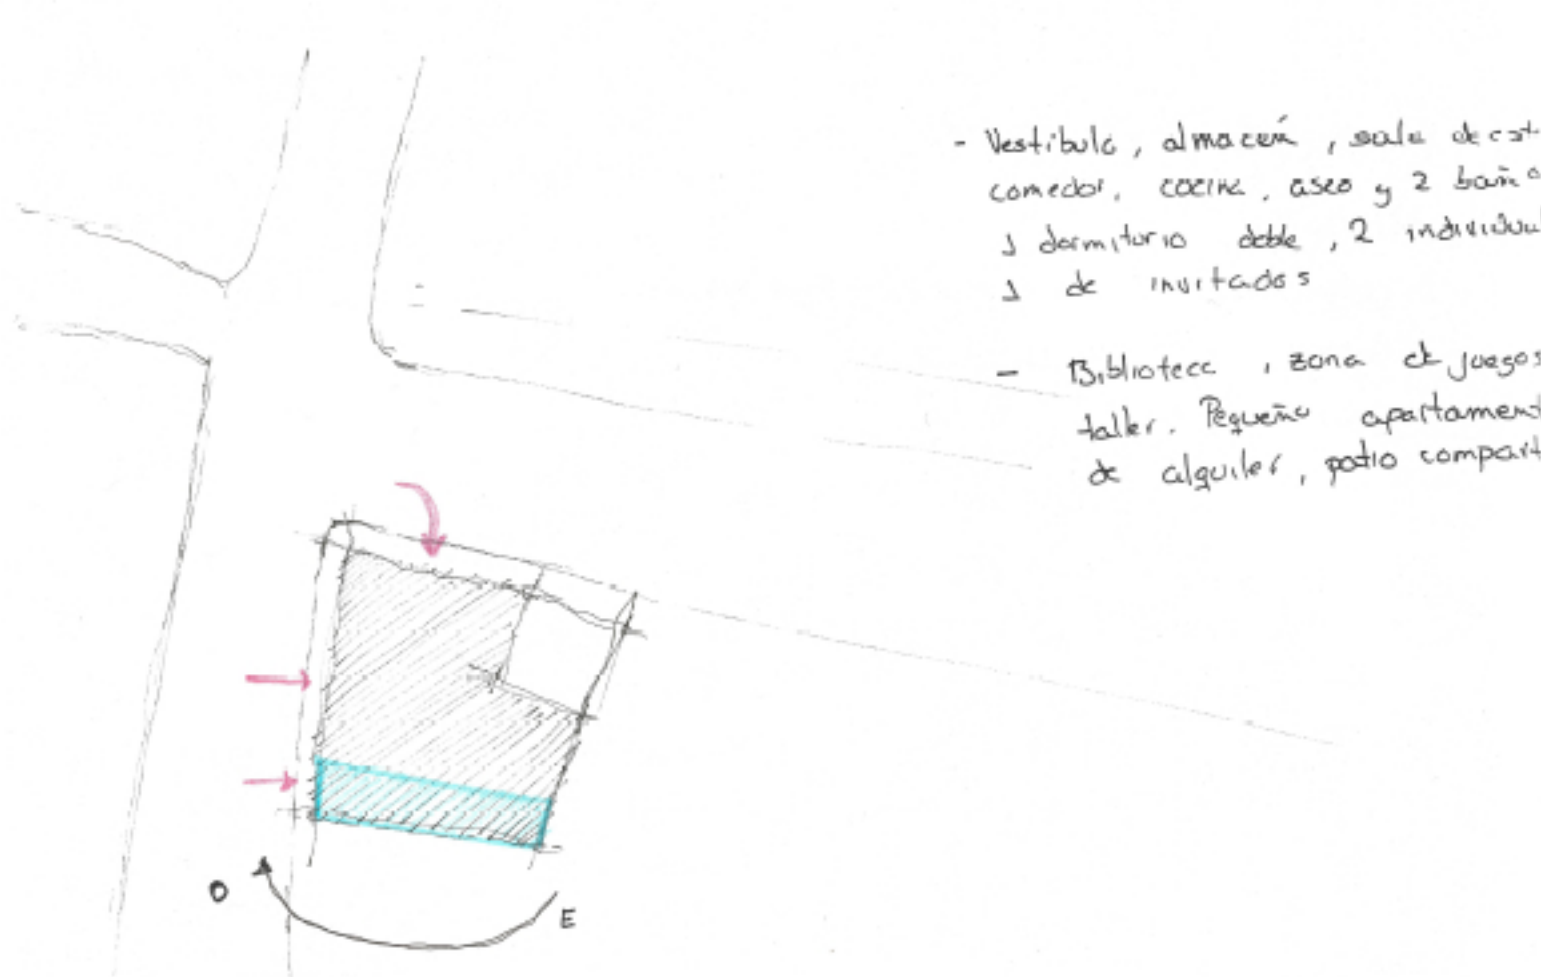 - Vestíbulo, almacén, sala de est
comedor, cocina, aseo y 2 baño
1 dormitorio doble, 2 individual
1 de invitados
- Biblioteca, zona de juegos
taller. Pequeño apartament
de alquiler, patio compart
O
E